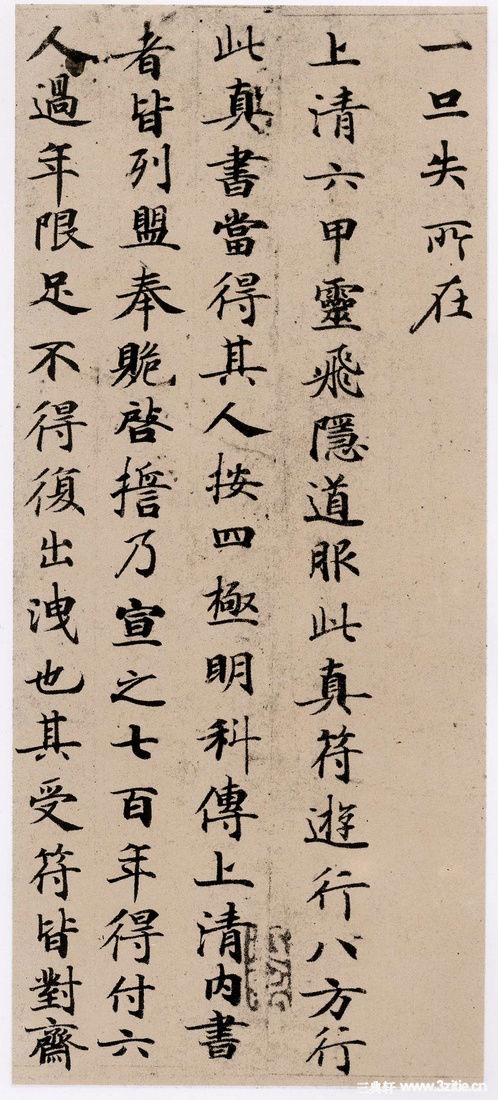 一旦失所在
上清六甲靈飛隱道服此真符遊行八方行
此真書當得其人按四極明科傳上清内書
者皆列盟奉啓誓乃宣之七百年得付六
人過年限足不得復出洩也其受符皆對齋
三典轩 www.3zitie.cn